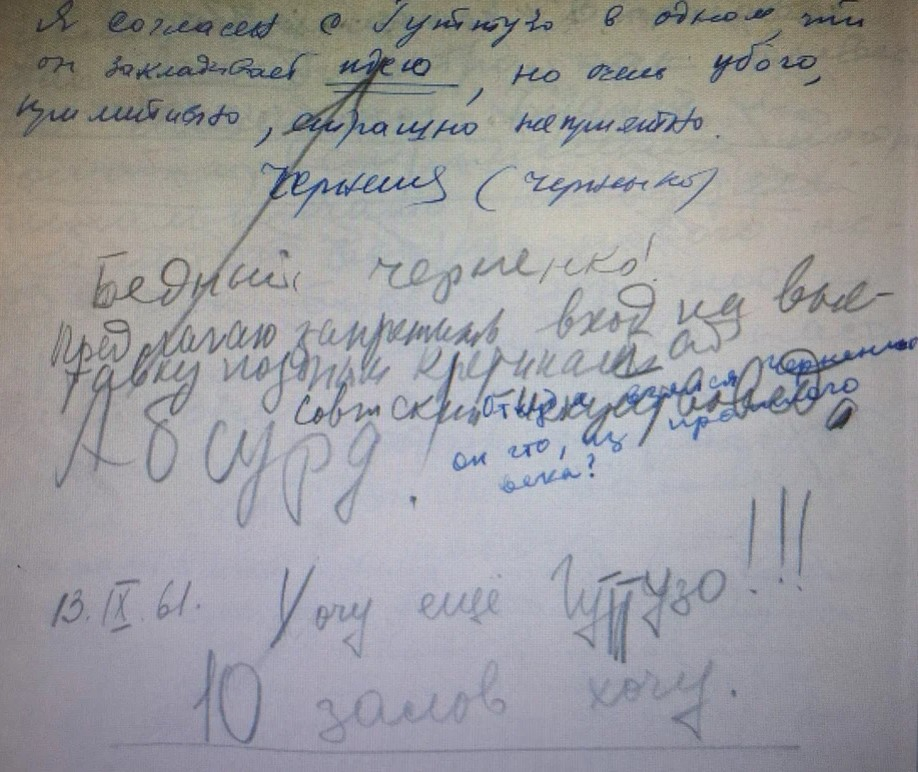 Я согласен с Гуттузо в одном, что
он закладывает идею, но очень убого,
примитивно, страшно неприятно.
(Черненко)
Бедный Черненко!
Предлагаю запретить вход на выс-
тавку подобным кретинам от
советского искусства
Откуда взялся Черненко
он что, из прошлого
века?
Абсурд.
13.IX.61. Хочу ещё Гуттузо!!!
10 залов хочу.